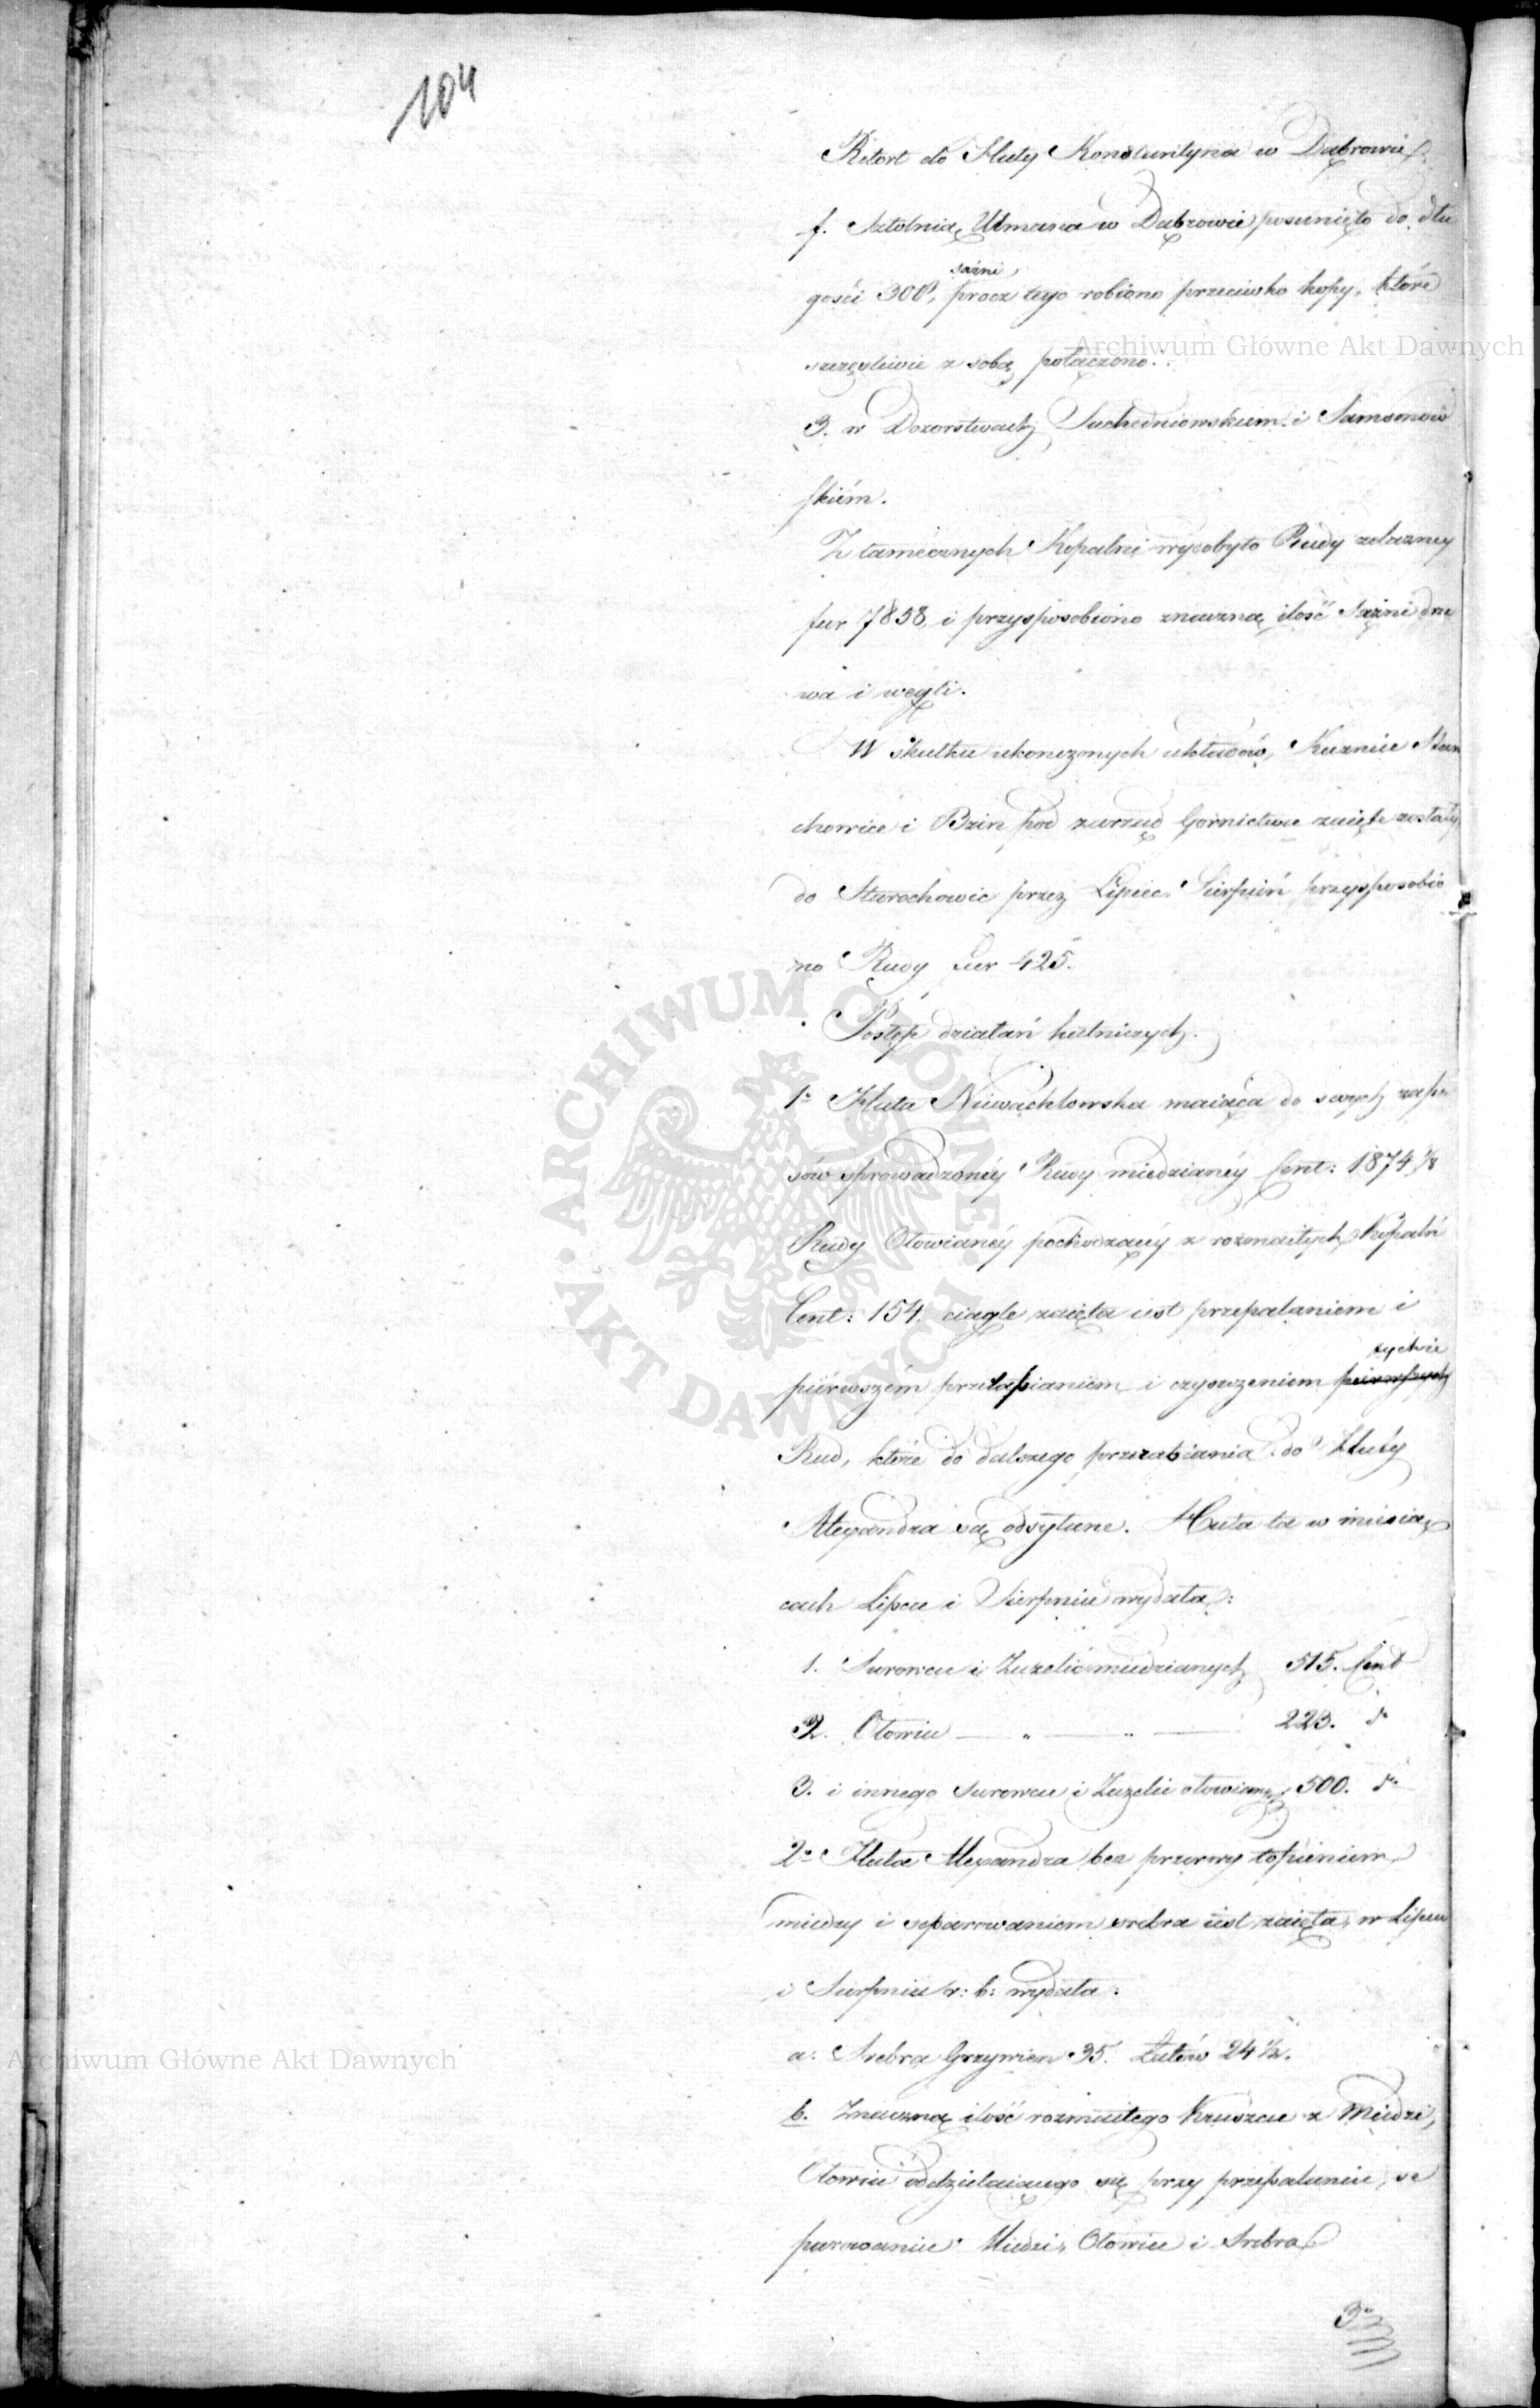 104
Retort do Huty Konstantyna w Dąbrowie.
f. Sztolnią Ulmana w Dąbrowie posunięto do dłu
sążni
gości 300, procz tego robiono przeciwko kopy, które
szczęśliwie z sobą połączono.
3. w Dozorstwach Suchedniowskiem i Samsonow
skiém.
Z tamecznych Kopalni wydobyto Rudy zelazney
fur 7858, i przysposobiono znaczną ilość Sążni drze
wa i węgli.
W skutku ukonczonych układów, Kuznice Star
chowice i Bzin pod zarząd Gornictwa zaięte zostały,
do Starochowic przez Lipiec Sierpień przysposobio
no Rudy fur 425.
Postęp działań hutniczych.
1º Huta Niewachlowska maiąca do swych zapa
sów sprowadzonéy Rudy miedzianéy Cent: 1874 1/8
Rudy Ołowianéy pochodzącéy z rozmaitych Kopalń
Cent: 154. ciągle zaięta iest przepalaniem i
tychże
pierwszém przetapianiem i czyszczeniem pierwszych
Rud, które do dalszego przerabiania do Huty
Alexandra są odsyłane. Huta ta w miesią
cach Lipcu i Sierpniu wydała:
1. Surowcu i Zuzelic miedzianych 515. Cent
2. Ołowiu — " — " — 223. dº
3. i innego Surowcu i Zuzelic ołowianych 500. dº
2º Huta Alexandra bez przerwy topieniem
miedzy i separowaniem srebra iest zaięta, w Lipcu
i Sierpniu r: b: wydała:
a. Srebra Grzywien 35. Łutów 24 1/2.
b. Znaczną ilość rozmaitego Kruszcu z Miedzi,
Ołowiu oddzielaiącego się przy przepalaniu, se
parowaniu Miedzi, Ołowiu i Srebra
3º
Archiwum Główne Akt Dawnych
Archiwum Główne Akt Dawnych
ARCHIWUM GŁÓWNE AKT DAWNYCH